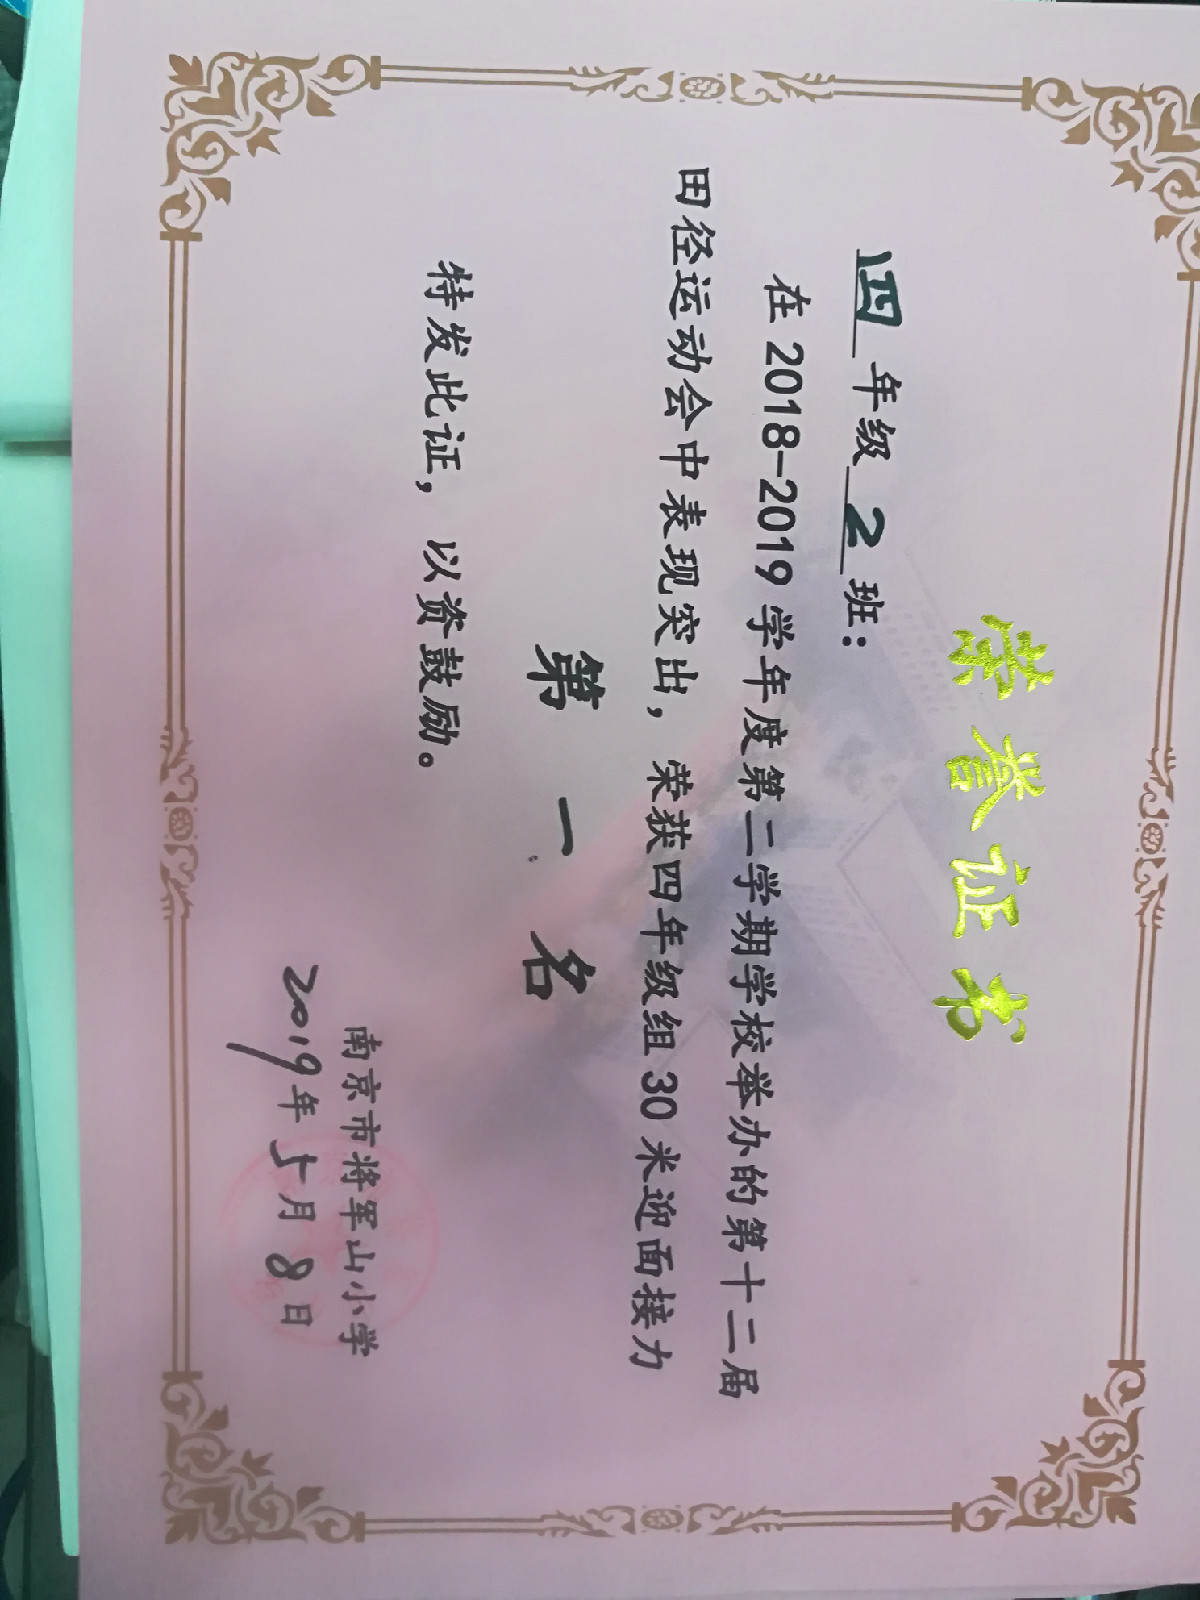 荣誉证书
四年级2班：
在2018-2019学年度第二学期学校举办的第十二届
田径运动会中表现突出，荣获四年级组30米迎面接力
第一名
特发此证，以资鼓励。
南京市将军山小学
2019年5月8日